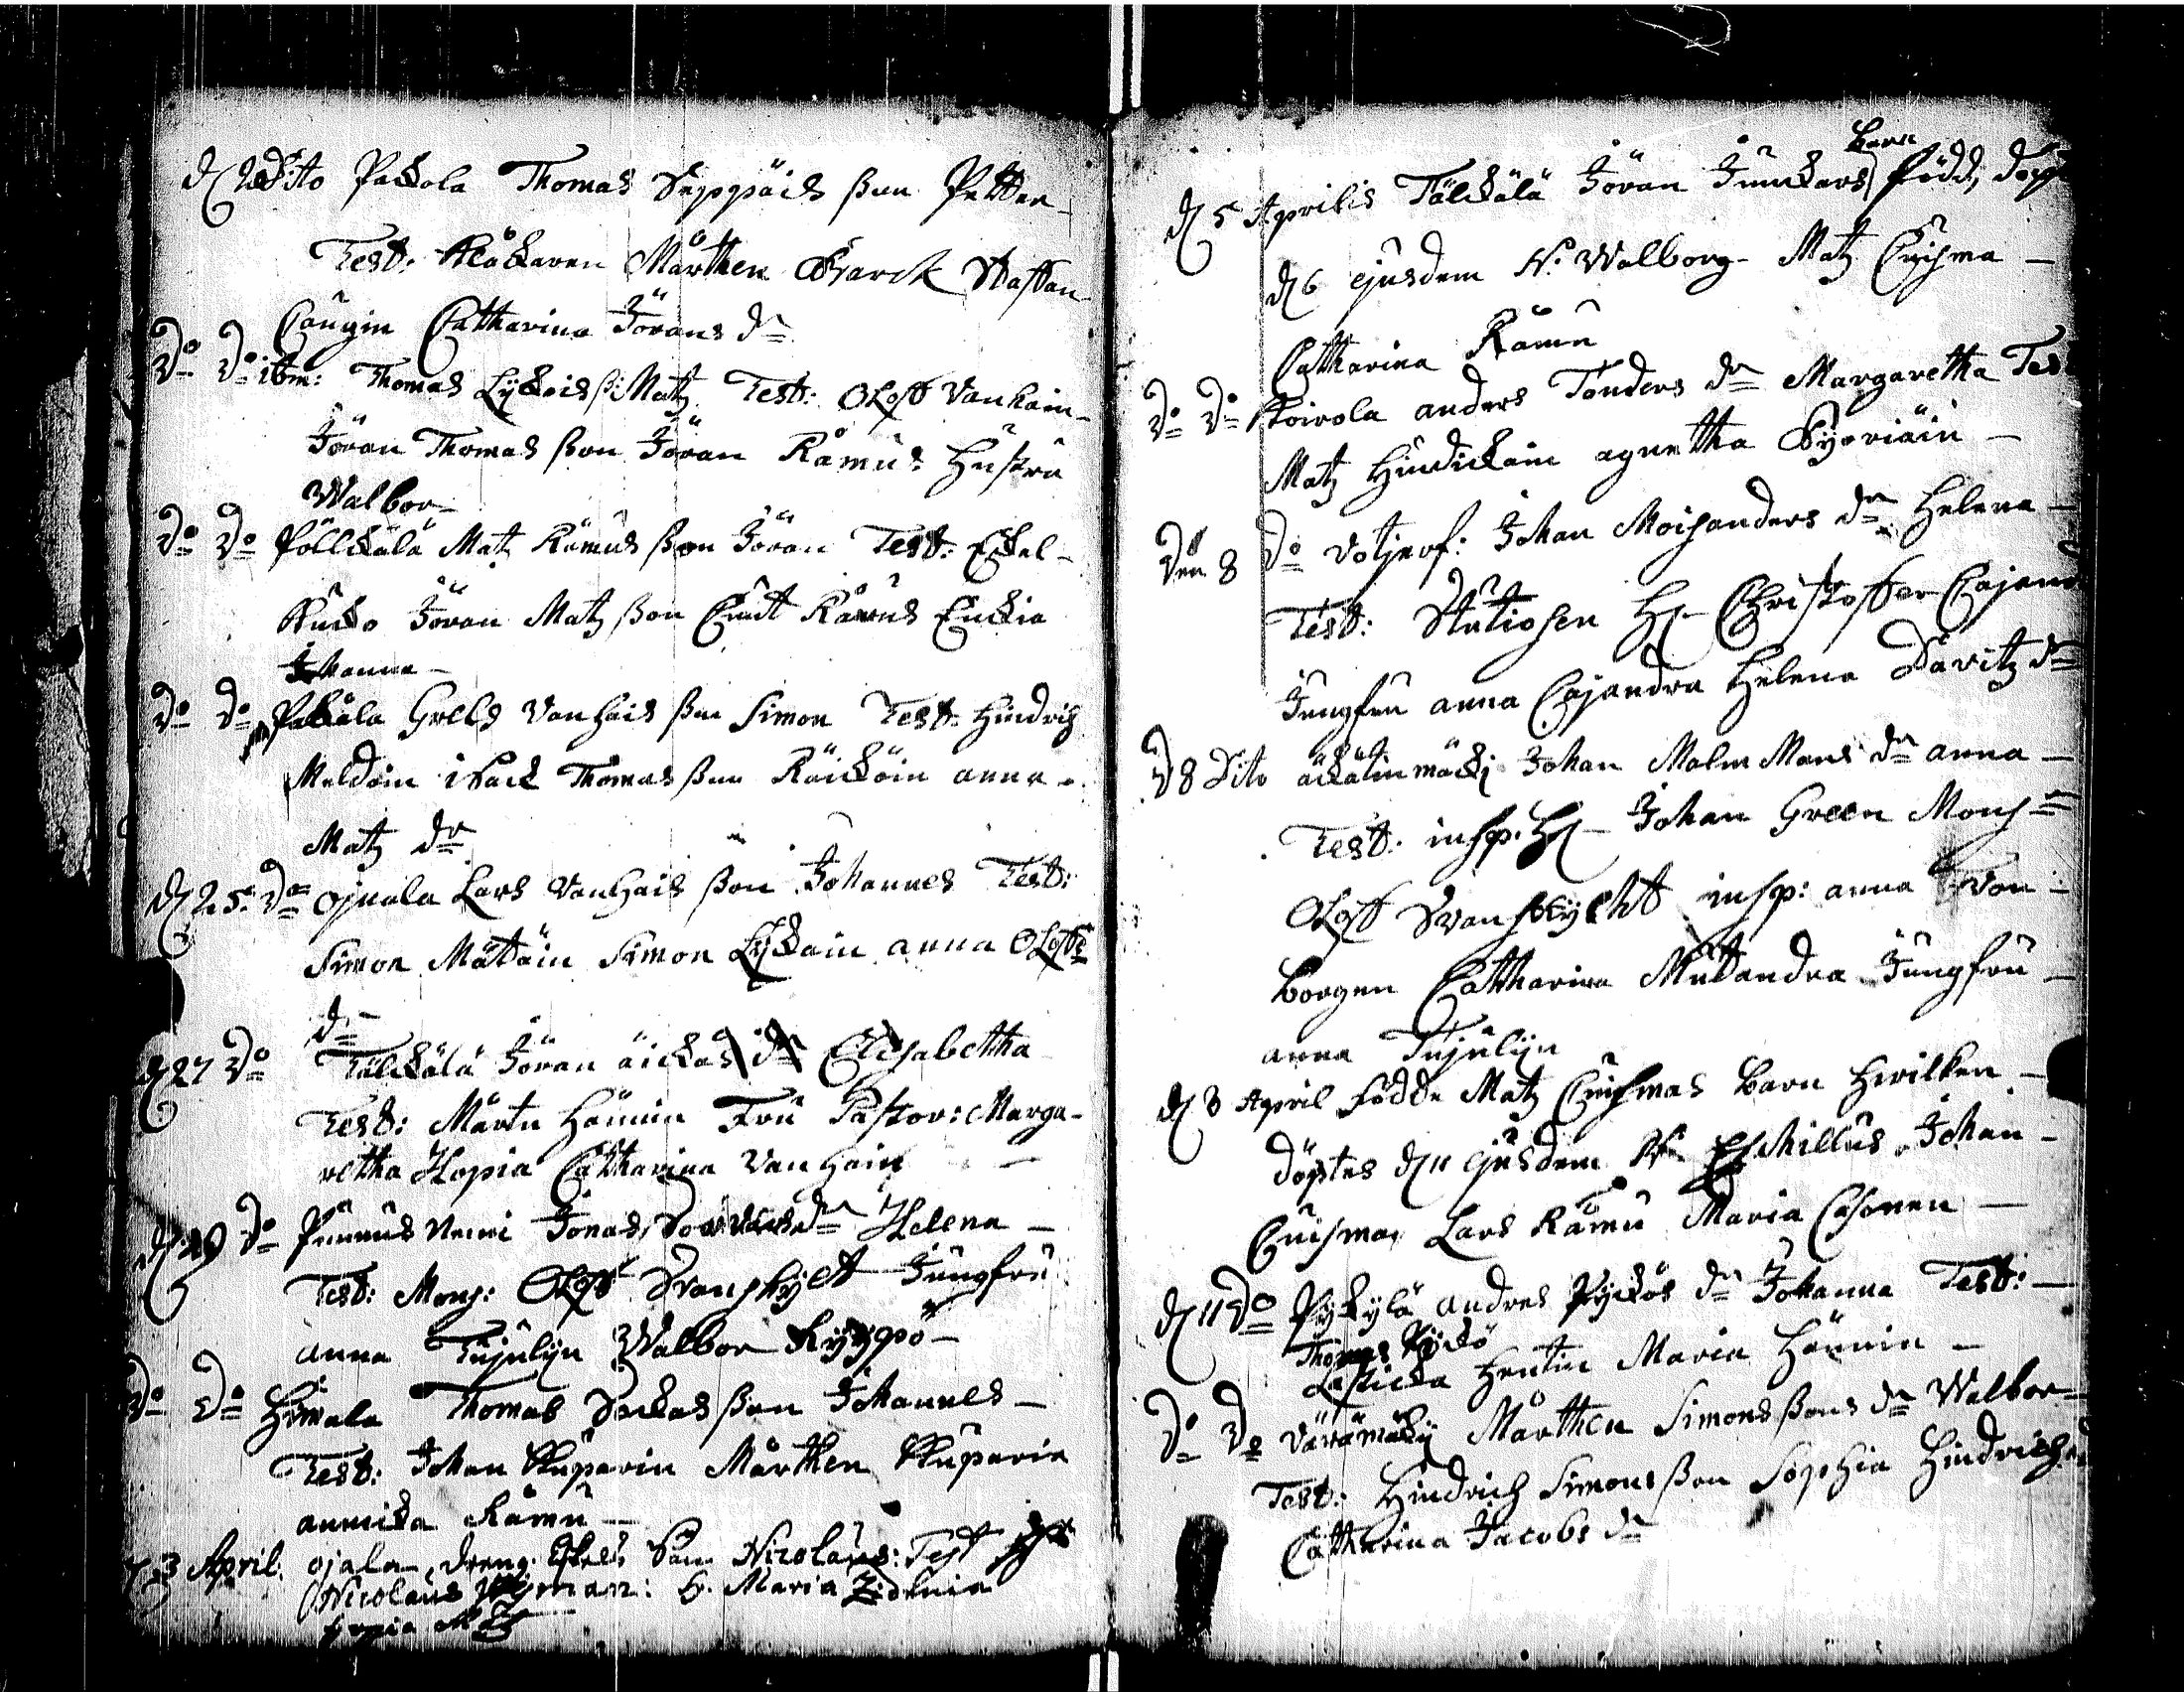 Dito Packola Thomas Seppäis ßon Petter
Test: Klåckaren Mårthen Starck Staffan
Caugin Catharina Jörans dr
Do Do ibm: Thomas Lyckois ß: Matz Test: Oloff Vanhain
Jöran Thomas ßon Jöran Rämus Hustru
Walbor
Do Do Pöllckälä Matz Rämus ßon Jöran Test: Eskel
Kucko Jöran Matz ßon Cnut Rämus Enckia
Johanna
Do Do Pakala Grels Vanhais ßon Simon Test: Hindrich
Meldoin Isack Thomas ßon Räicköin anna
Matz dr
d 25 Do ojuala Lars Vanhais ßon Johannes Test:
Simon Mätäin Simon Lyckain anna Oloffz
dr
d 27 Do Tälckälä Jöran äickäs dr Elisabetha
Test: Mårtn Hännin Fru Pastor: Marga-
retha Hopia Catharina Vanhain
Do Punnus Nemi Jonas dr Helena
Test: Mons: Oloff Svanskylt Jungfru
anna Tujulin Walbor Ryyppö
Do Do Himala Thomas Sackas ßon Johannes
Test: Johan Kuparin Mårthen Kuparin
annicka Rämu
d 3 April. ojala, dreng: Eskels Son Nicolaus: Test
Nicolaus: H. Maria Zidenia
d 5 Aprilis Tälckälä Jöran Junckars Barn född, döpt
d 6 ejusdem N: Walborg Matz Cuisma
Catharina Rämu
Do Do Koirola anders Tonders dr Margaretha Test
Matz Hindickain agnetha Kyöriäin
Den 8 Do Votjerf: Johan Moisanders dr Helena
Test: Studiosen Hr Christoffer Cajan
Jungfru anna Cajandra Helena Davitz dr
d 8 Dito äckätinmäcki Johan Malm Mans dr anna
Test: insp. Hr Johan Green Mons
Oloff Svanskycht insp: anna Von
borgen Catharina Mutandra Jungfru
anna Tujulin
d 8 April födde Matz Cuismas barn hvilken
döptes d 11 ejusdem N: Eschillus Johan
Cuisma Lars Rämu Maria Cosonen
d 11 Do Pyckylä andres Pyckös dr Johanna Test:
Thomas Pyckö
Lasticka Hentin Maria Hännin
Do Do Väärämäky Mårthen Simons ßons dr Walbor
Test: Hindrich Simons ßon Sophia Hindrichs
Catharina Jacobs dr